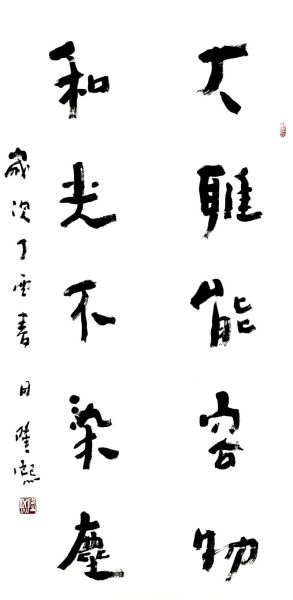 大雅能容物
和光不染塵
歲次丁春日陸熙